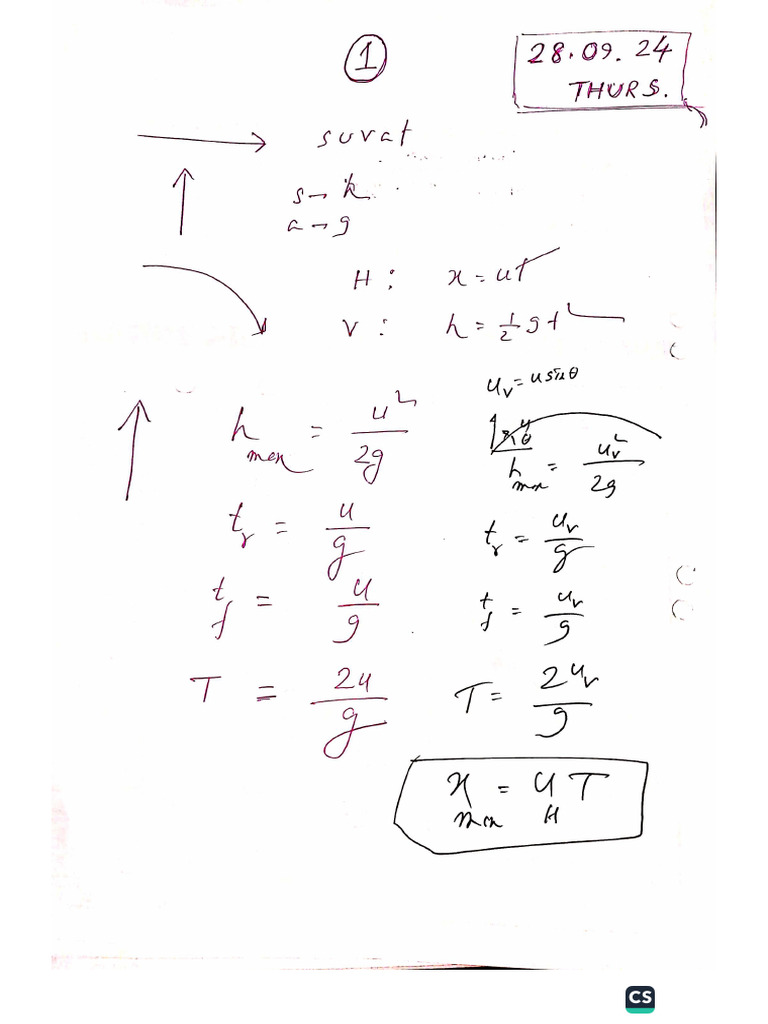 1
28.09.24
THURS.
suvat
s → h
a → g
H : x = ut
V : h = 1/2 gt²
h max = u²/2g
u_v = u sin θ
u
θ
h max = u_v²/2g
t_r = u/g
t_r = u_v/g
t_f = u/g
t_f = u_v/g
T = 2u/g
T = 2u_v/g
x max = u_H T
CS